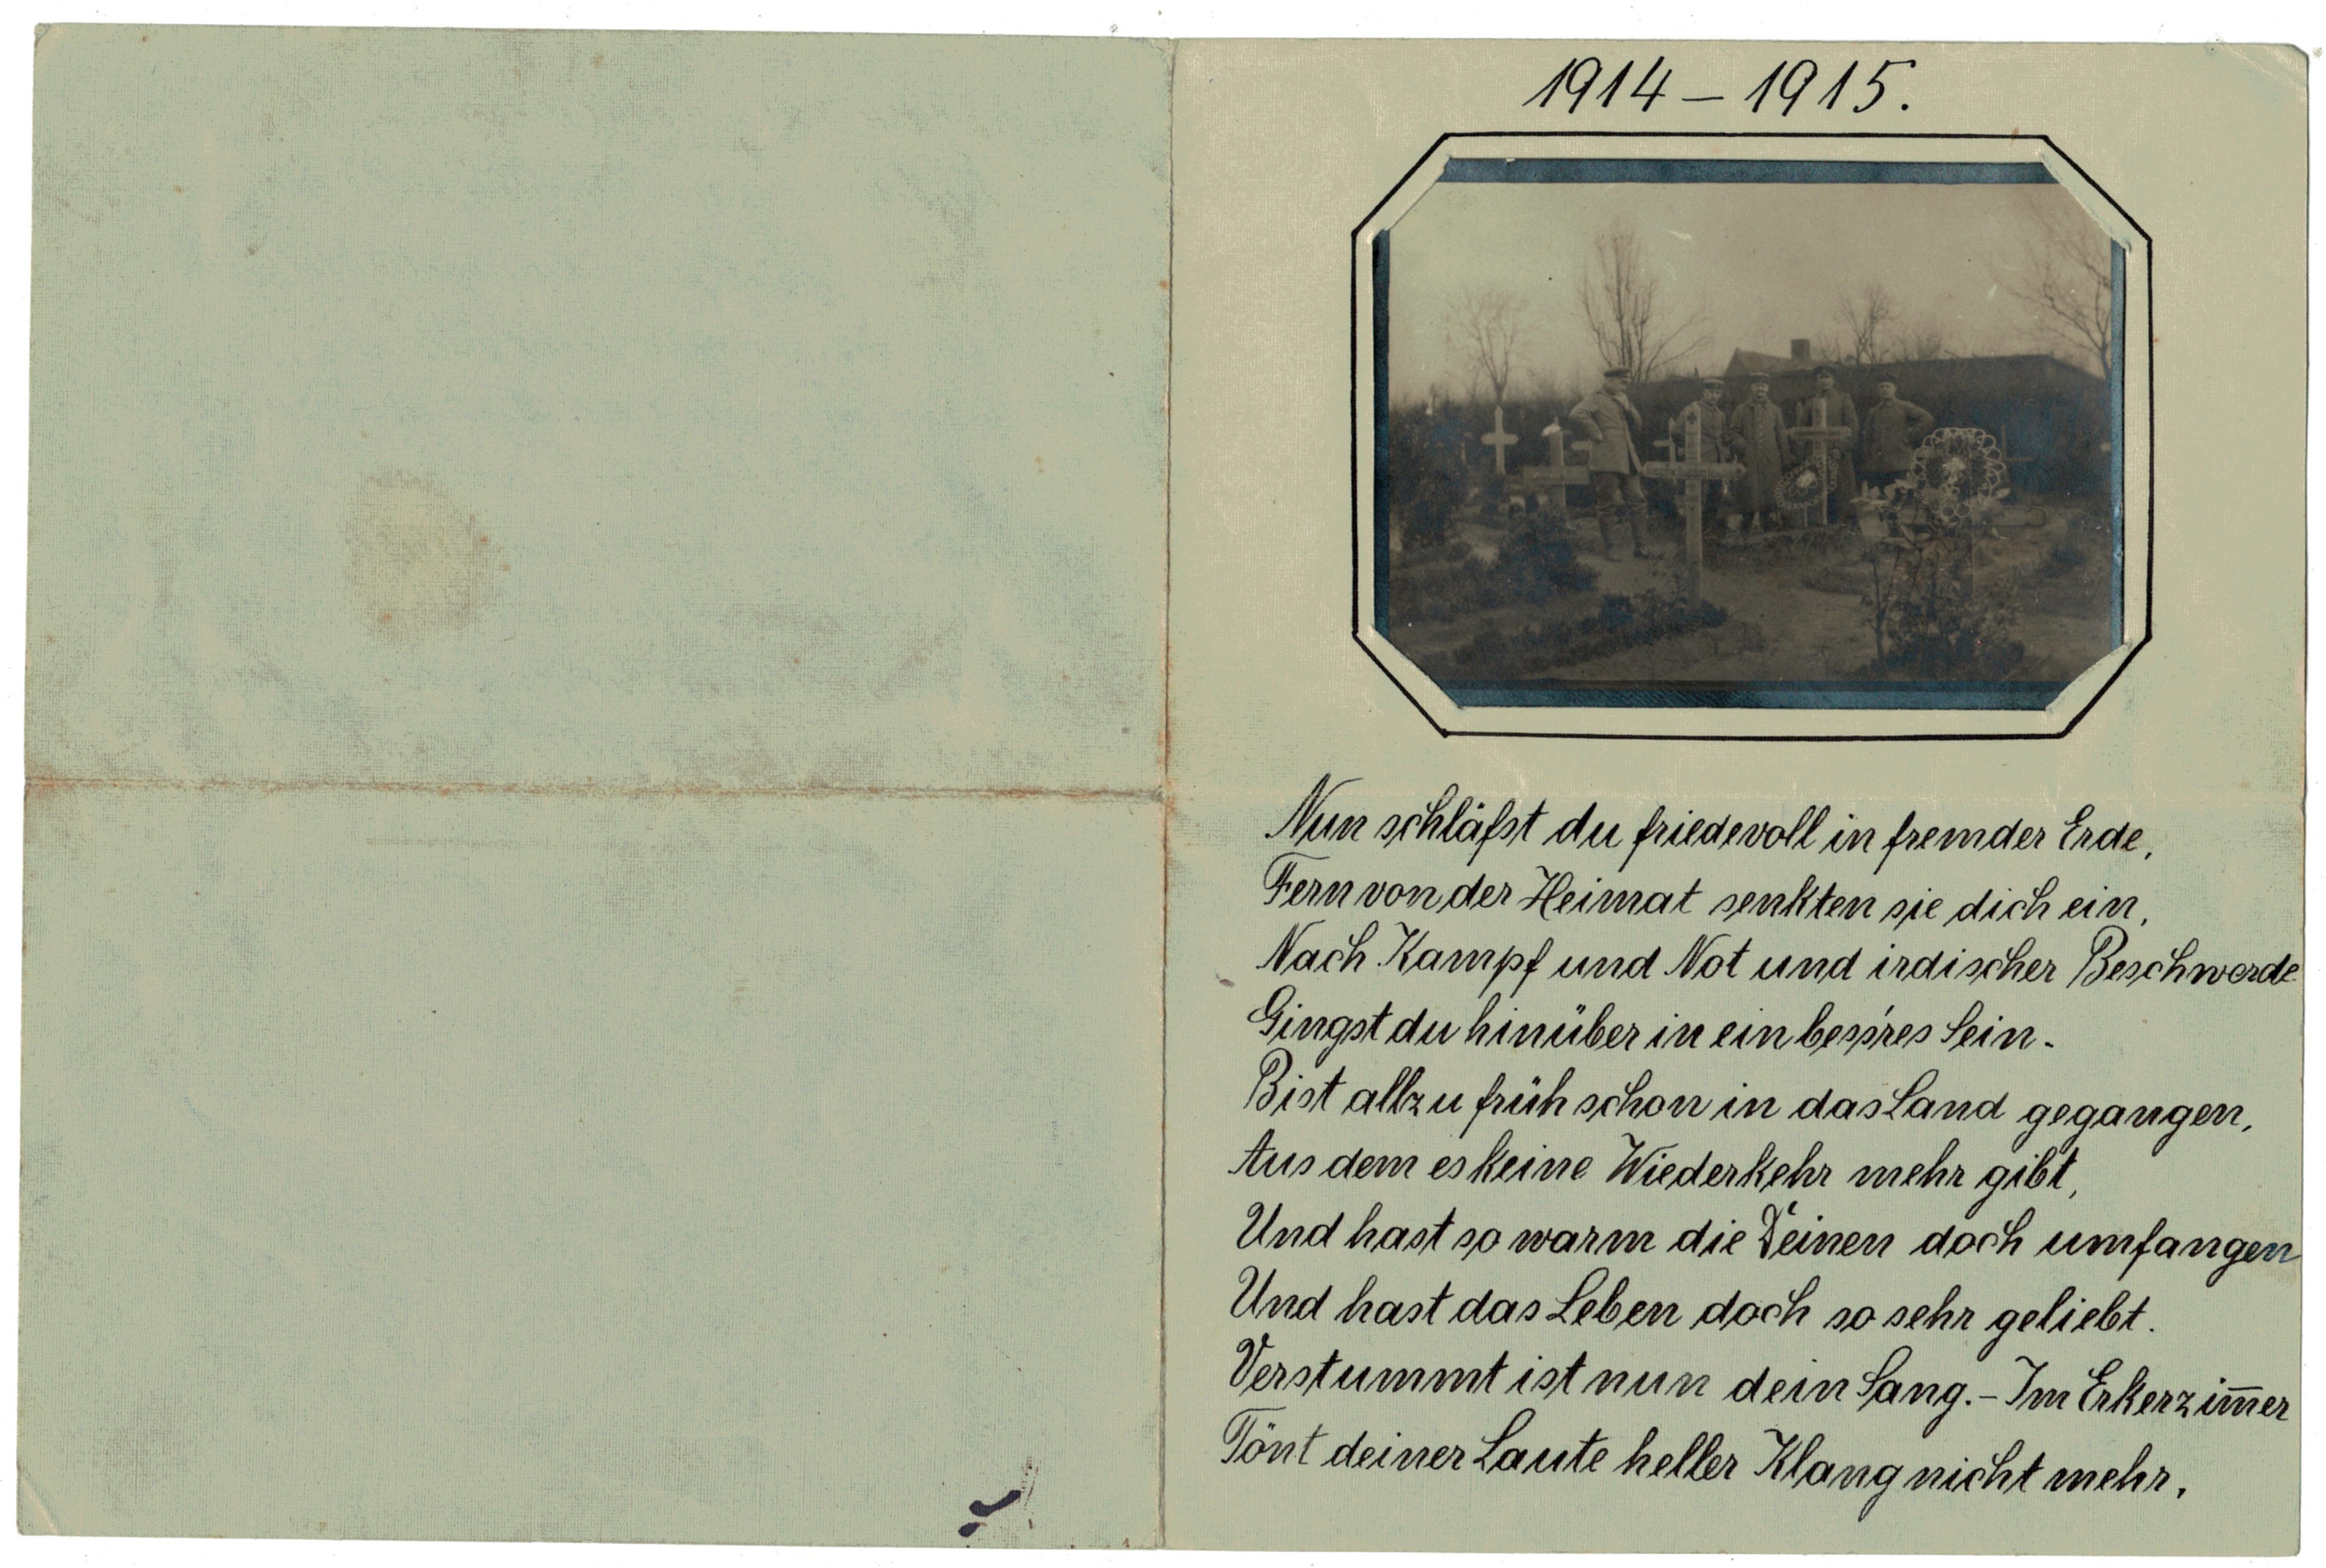 1914 – 1915.
Nun schläfst du friedevoll in fremder Erde,
Fern von der Heimat senkten sie dich ein,
Nach Kampf und Not und irdischer Beschwerde
Gingst du hinüber in ein bess'res Sein.
Bist allzu früh schon in das Land gegangen,
Aus dem es keine Wiederkehr mehr gibt,
Und hast so warm die Deinen doch umfangen
Und hast das Leben doch so sehr geliebt.
Verstummt ist nun dein Sang. – Im Erkerzim̅er
Tönt deiner Laute heller Klang nicht mehr,